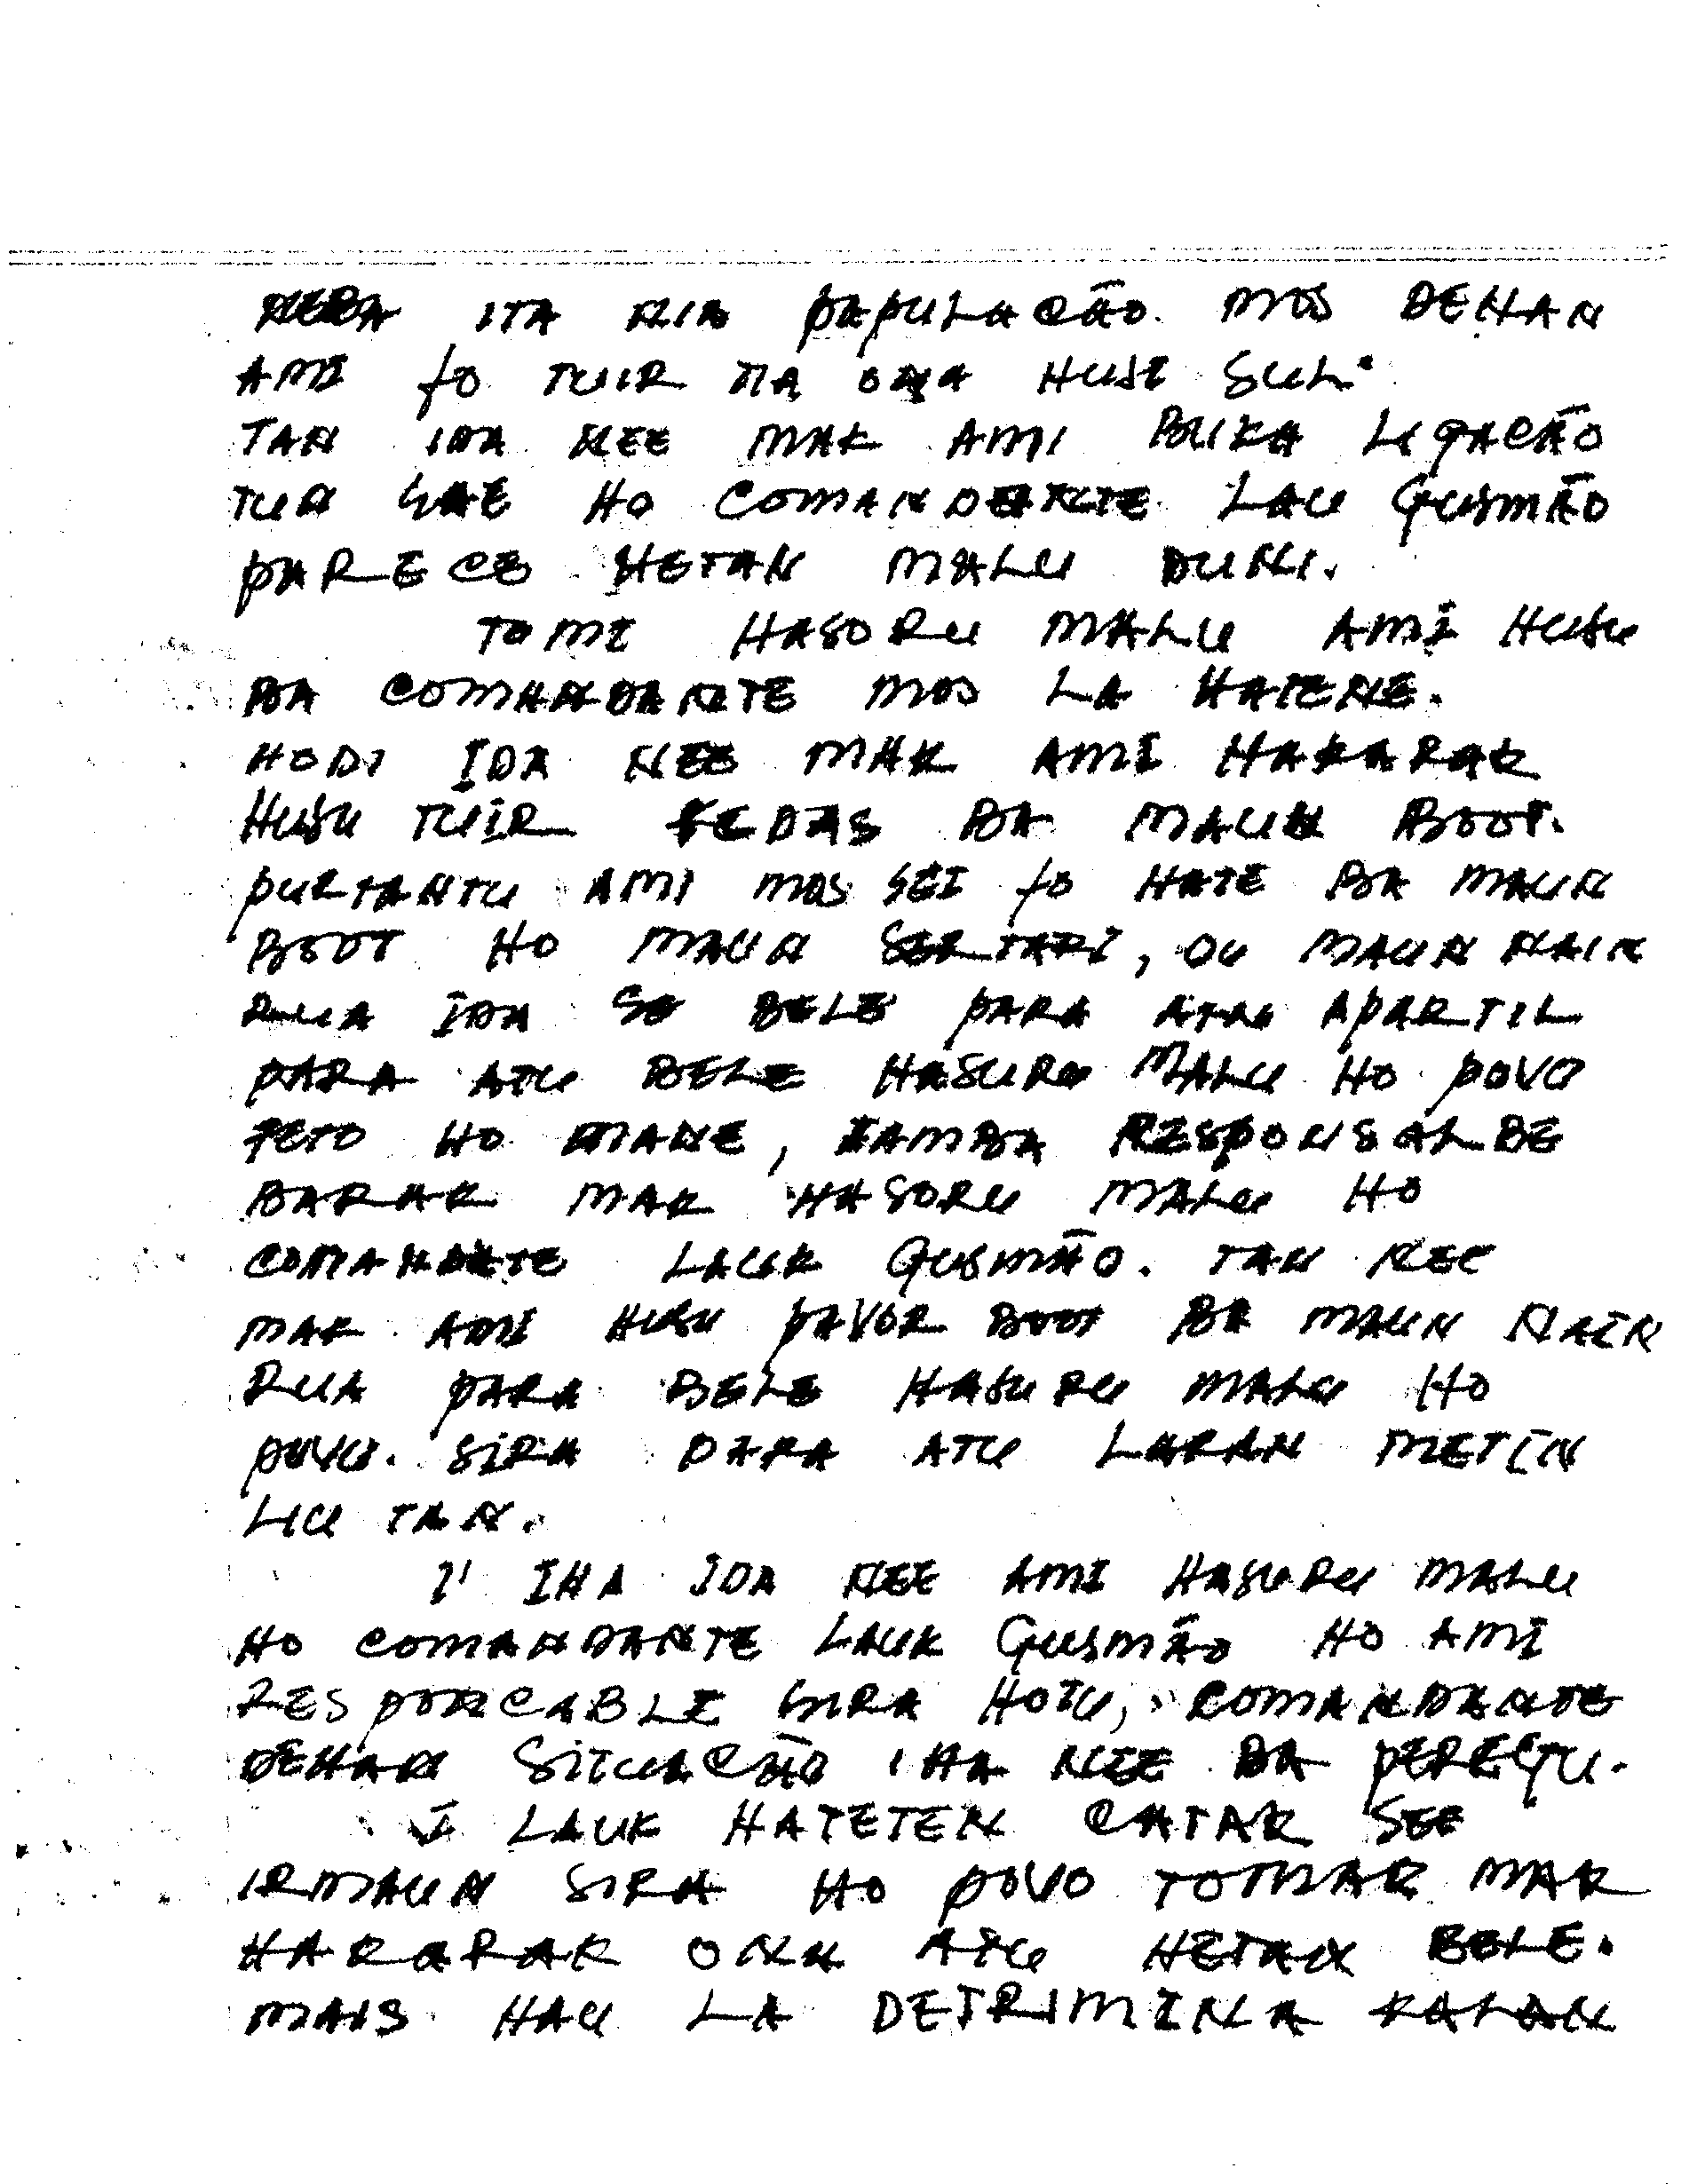 NEBA ITA NIA PAPULACÃO MOS DEHAN
AMI FO TUIR NA ONA HUSI SUL.
TAN IDA NEE MAK AMI BUKA LIGACÃO
TUN SAE HO COMANDENTE LAU GUSMÃO
PARECE HETAN MALU DUNI.
TO MI HASORU MALU AMI HUSU
BA COMANDANTE MOS LA HATENE.
HODI IDA NEE MAK AMI HAKARAK
HUSU TUIR FEDAS BA MAUN BOOT.
PURTANTU AMI MOS SEI FO HATE BA MAUN
BOOT HO MAUN SERTARI, OU MAUN NAIN
RUA IDA SE BELE PARA ATAU APARTIL
PARA ATU BELE HASURU MALU HO POVO
FETO HO MANE, LAMBA RESPONSALBE
BARAK MAK HASORU MALU HO
COMANDANTE LAUK GUSMÃO. TAN NEE
MAK AMI HUSU FAVOR BOOT BA MAUN NAIN
RUA PARA BELE HASURU MALU HO
POVU. SIRA PARA ATU LARAN METIN
LIU TAN.
I' IHA IDA NEE AMI HASURU MALU
HO COMANDANTE LAUK GUSMÃO HO AMI
RESPONCABLE SIRA HOTU, COMANDANTE
DEHAN SITUACÃO IHA NEE BA PEREGU.
I LAUK HATETEN CATAK SEE
IRMAUN SIRA HO POVO TOMAK MAK
HAKARAK ONA ATU HETAN BELE.
MAIS HAU LA DETRIMINA KALAN